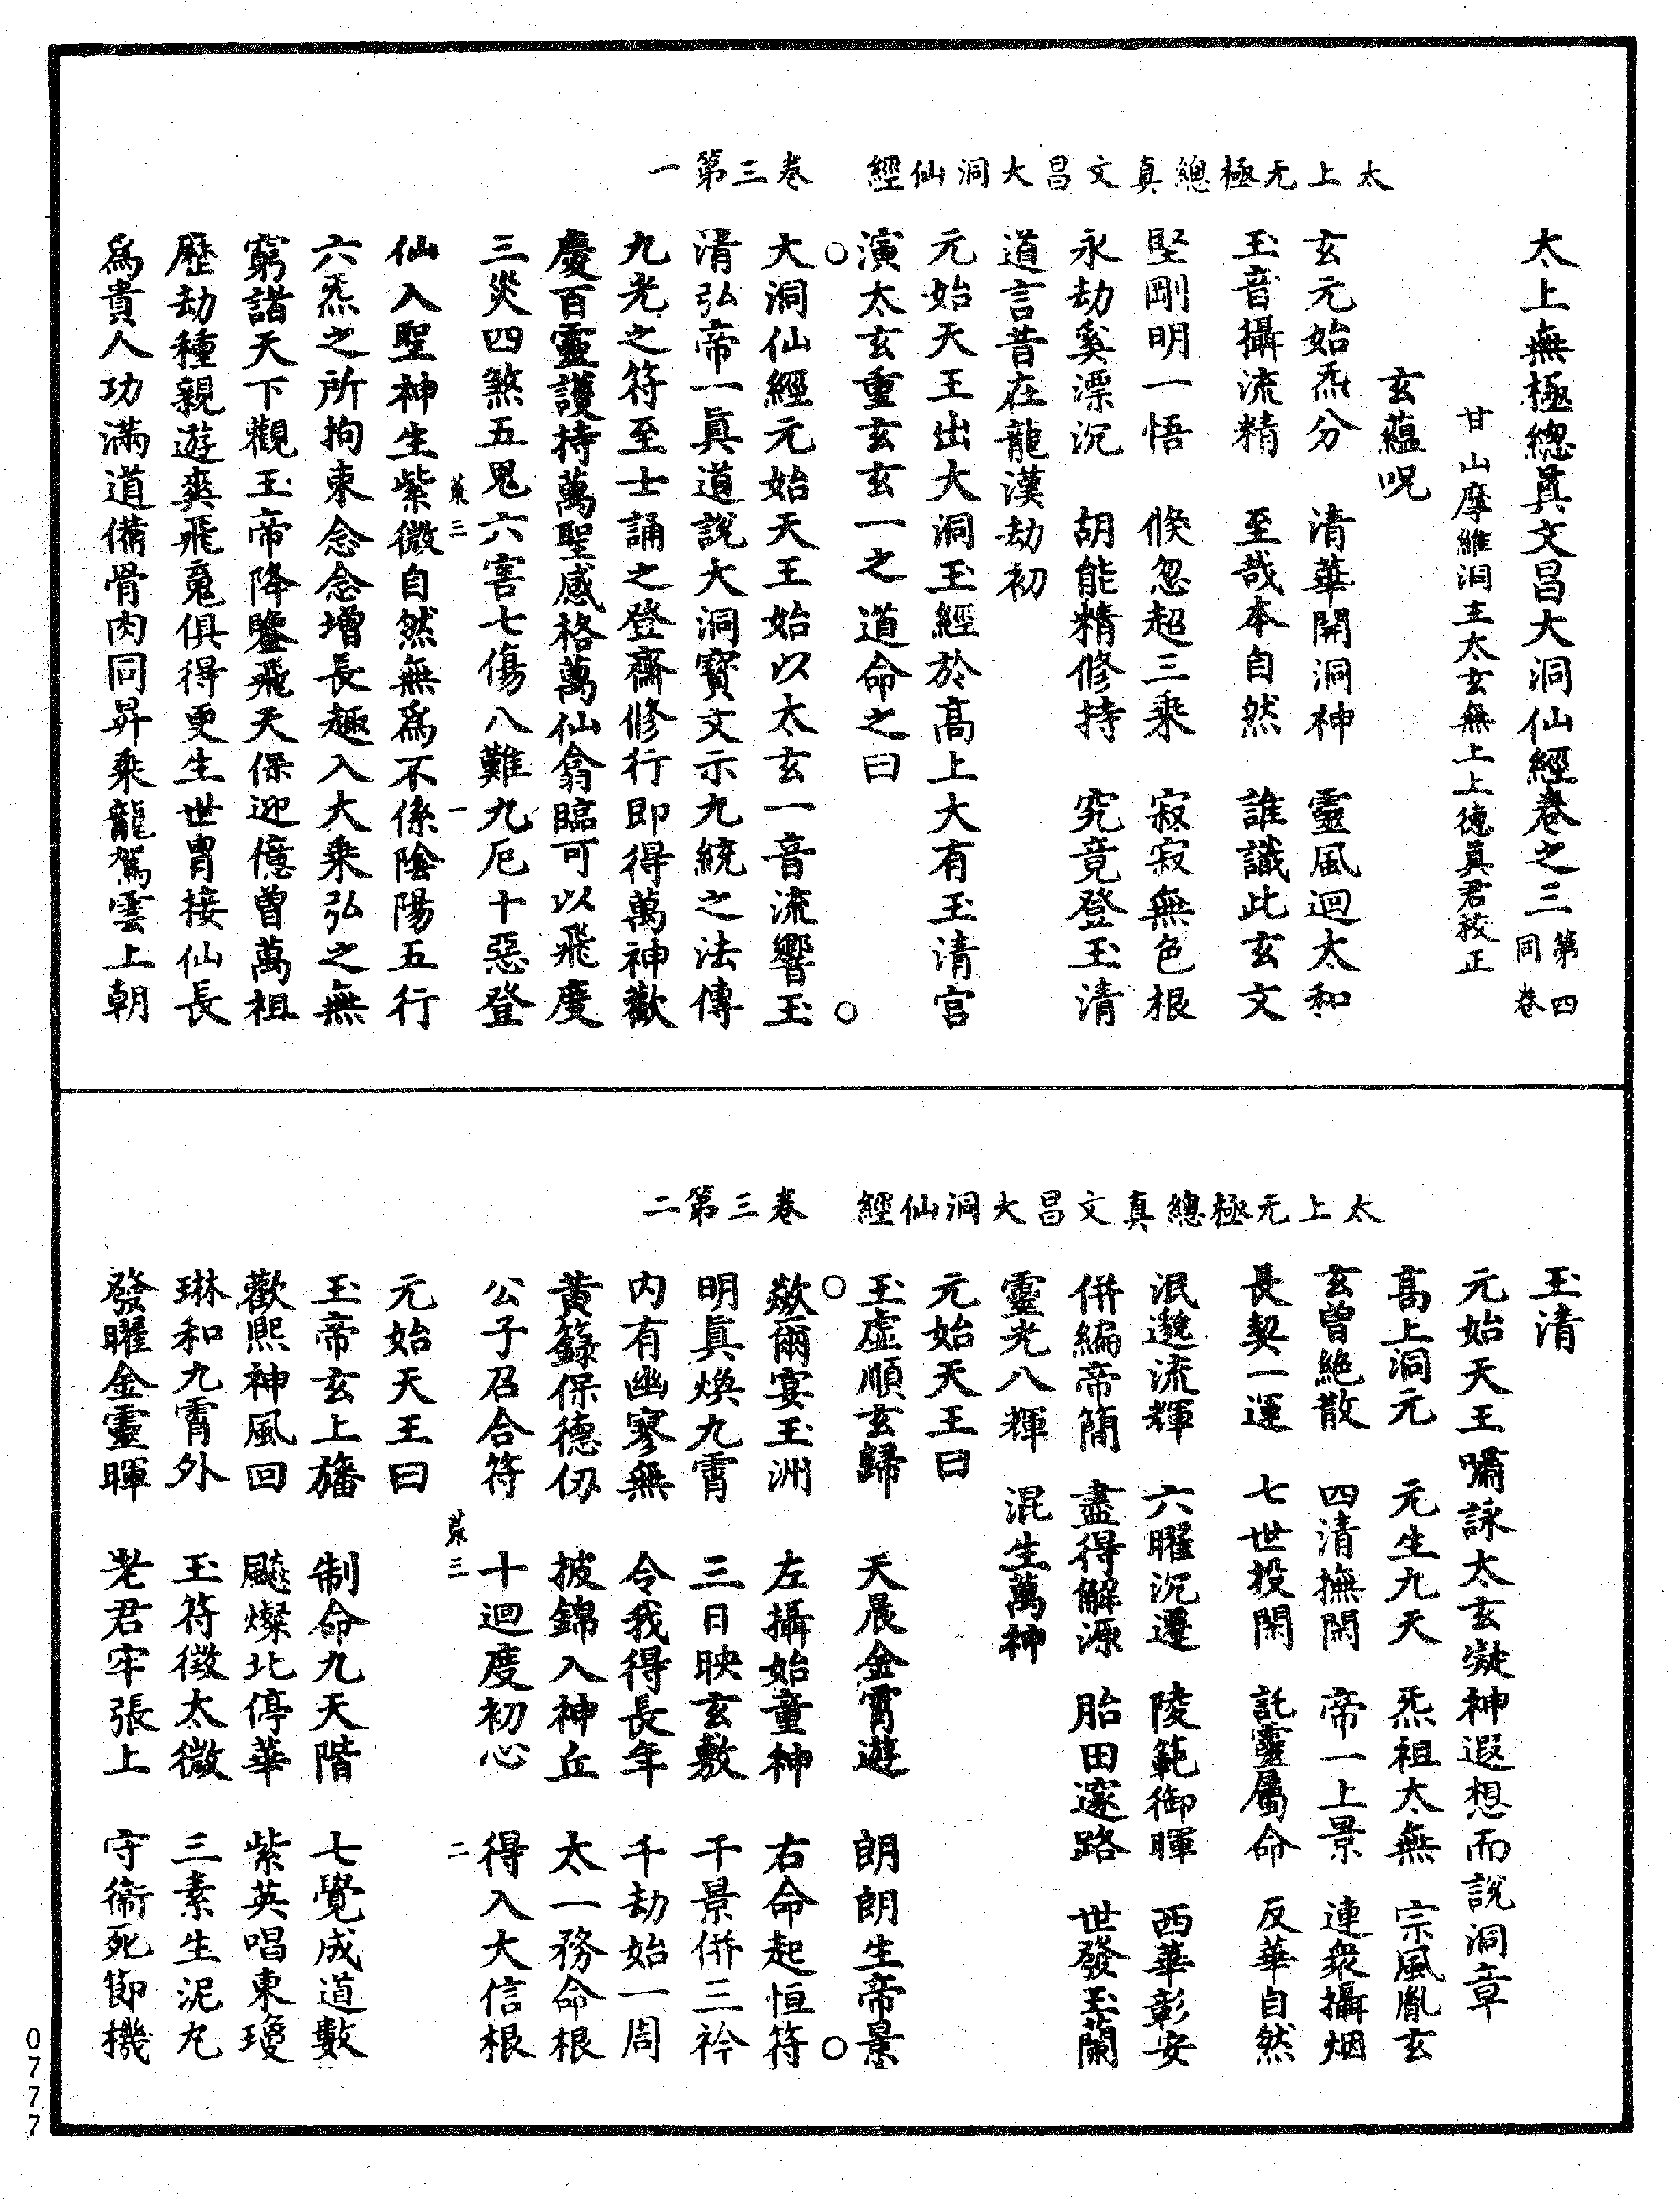 太上无極總真文昌大洞仙經　卷三第一
太上無極總眞文昌大洞仙經卷之三第四同卷
甘山摩維洞主太玄無上上德眞君校正
玄蘊呪
玄元始炁分　清華開洞神　靈風迴太和
玉音攝流精　至哉本自然　誰識此玄文
堅剛明一悟　倏忽超三乘　寂寂無色根
永劫奚漂沉　胡能精修持　究竟登玉清
道言昔在龍漢劫初
元始天王出大洞玉經於高上大有玉清宮
演太玄重玄玄一之道命之曰
大洞仙經元始天王始以太玄一音流響玉
清弘帝一眞道說大洞寶文示九統之法傳
九光之符至士誦之登齋修行即得萬神歡
慶百靈護持萬聖感格萬仙翕臨可以飛度
三災四煞五鬼六害七傷八難九厄十惡登
菓三　一
仙入聖神生紫微自然無爲不係陰陽五行
六炁之所拘束念念增長趣入大乘弘之無
窮諧天下觀玉帝降鑒飛天保迎億曾萬祖
歷劫種親遊爽飛䰟俱得更生世胄接仙長
爲貴人功滿道備骨肉同昇乘龍駕雲上朝
太上无極總真文昌大洞仙經　卷三第二
玉清
元始天王嘯詠太玄凝神遐想而說洞章
高上洞元　元生九天　炁祖太無　宗風胤玄
玄曾絶散　四清撫閑　帝一上景　連衆攝烟
長契一運　七世投閑　託靈屬命　反華自然
泯邈流輝　六曜沉遷　陵範御暉　西華彰安
併編帝簡　盡得解源　胎田邃路　世發玉蘭
靈光八輝　混生萬神
元始天王曰
玉虛順玄歸　天晨金霄遊　朗朗生帝景
歘爾宴玉洲　左攝始童神　右命起恒符
明眞煥九霄　三日映玄敷　干景併三衿
内有幽寥無　令我得長年　千劫始一周
黄籙保德仞　披錦入神丘　太一務命根
公子召合符　十迴度初心　得入大信根
菓三　二
元始天王曰
玉帝玄上旛　制命九天階　七覺成道數
歡熙神風回　飈燦北停華　紫英唱東瓊
琳和九霄外　玉符徵太微　三素生泥丸
發曜金靈暉　老君牢張上　守衞死節機
0777